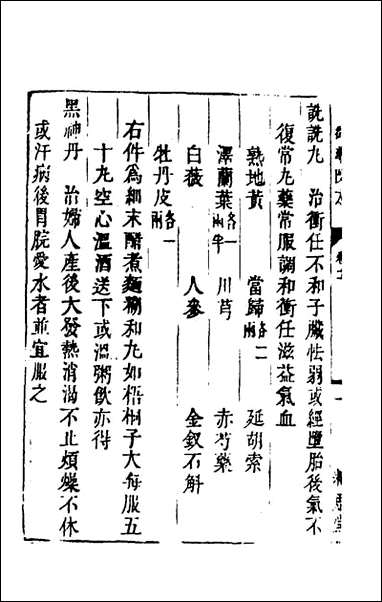 詵詵丸　治衝任不和子臟怯弱或經墮胎後氣不
復常丸藥常服調和衝任滋益氣血
熟地黃　當歸各二兩　延胡索
澤蘭葉各一兩半　川芎　赤芍藥
白薇　人參　金釵石斛
牡丹皮各一兩
右件為細末醋煮麵糊和丸如梧桐子大每服五
十丸空心溫酒送下或溫粥飲亦得
黑神丹　治婦人產後大發熱消渴不止煩燥不休
或汗病後胃脘愛水者並宜服之